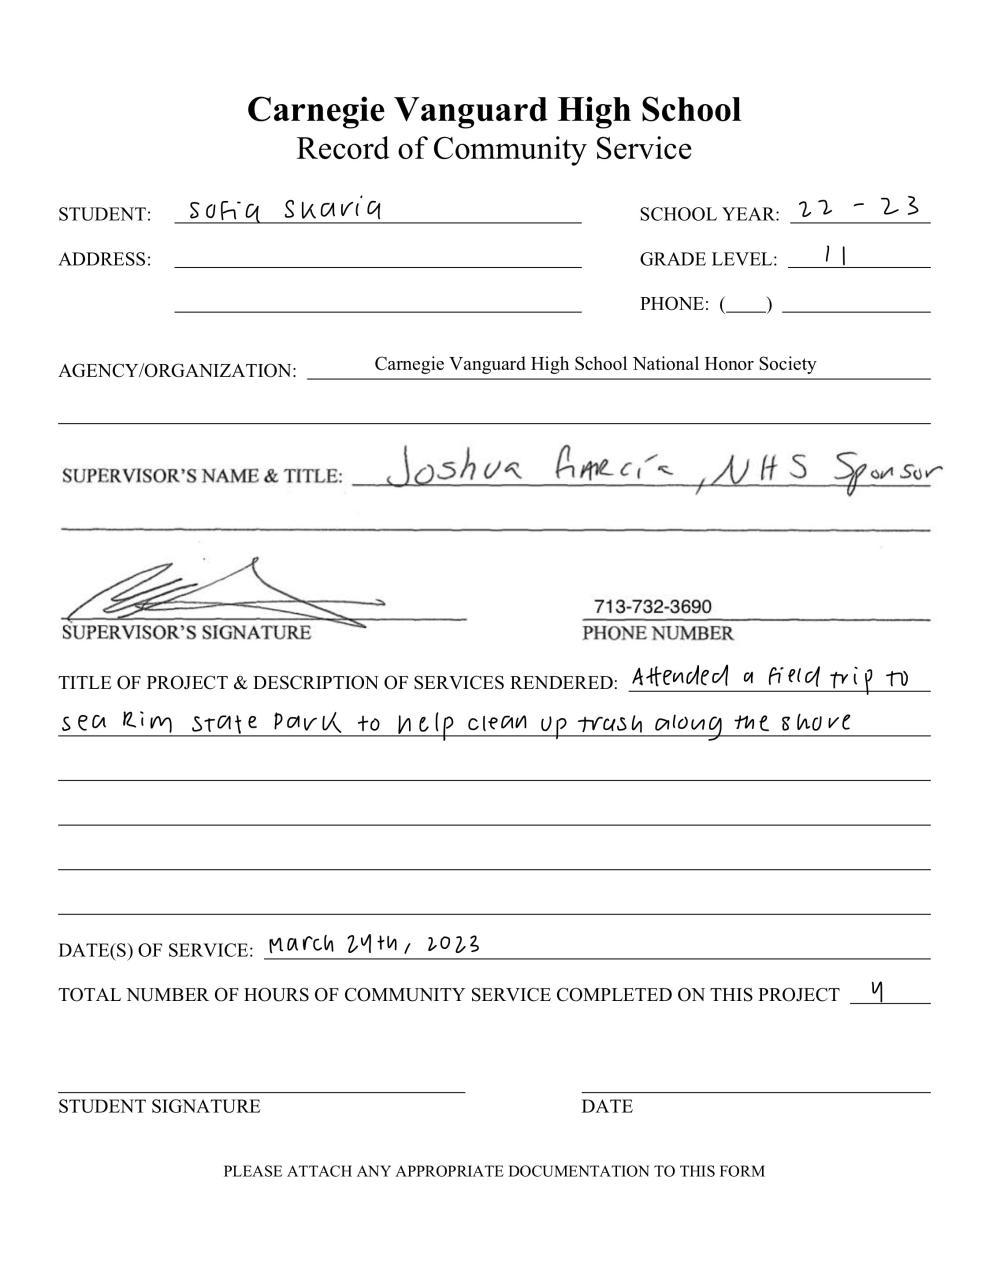 Carnegie Vanguard High School
Record of Community Service
STUDENT: Sofia Skaria SCHOOL YEAR: 22 - 23
ADDRESS: GRADE LEVEL: 11
PHONE: (____)
AGENCY/ORGANIZATION: Carnegie Vanguard High School National Honor Society
SUPERVISOR'S NAME & TITLE: Joshua Garcia, NHS Sponsor
713-732-3690
SUPERVISOR'S SIGNATURE PHONE NUMBER
TITLE OF PROJECT & DESCRIPTION OF SERVICES RENDERED: Attended a field trip to
sea Rim state Park to help clean up trash along the shore
DATE(S) OF SERVICE: March 24th, 2023
TOTAL NUMBER OF HOURS OF COMMUNITY SERVICE COMPLETED ON THIS PROJECT 4
STUDENT SIGNATURE DATE
PLEASE ATTACH ANY APPROPRIATE DOCUMENTATION TO THIS FORM